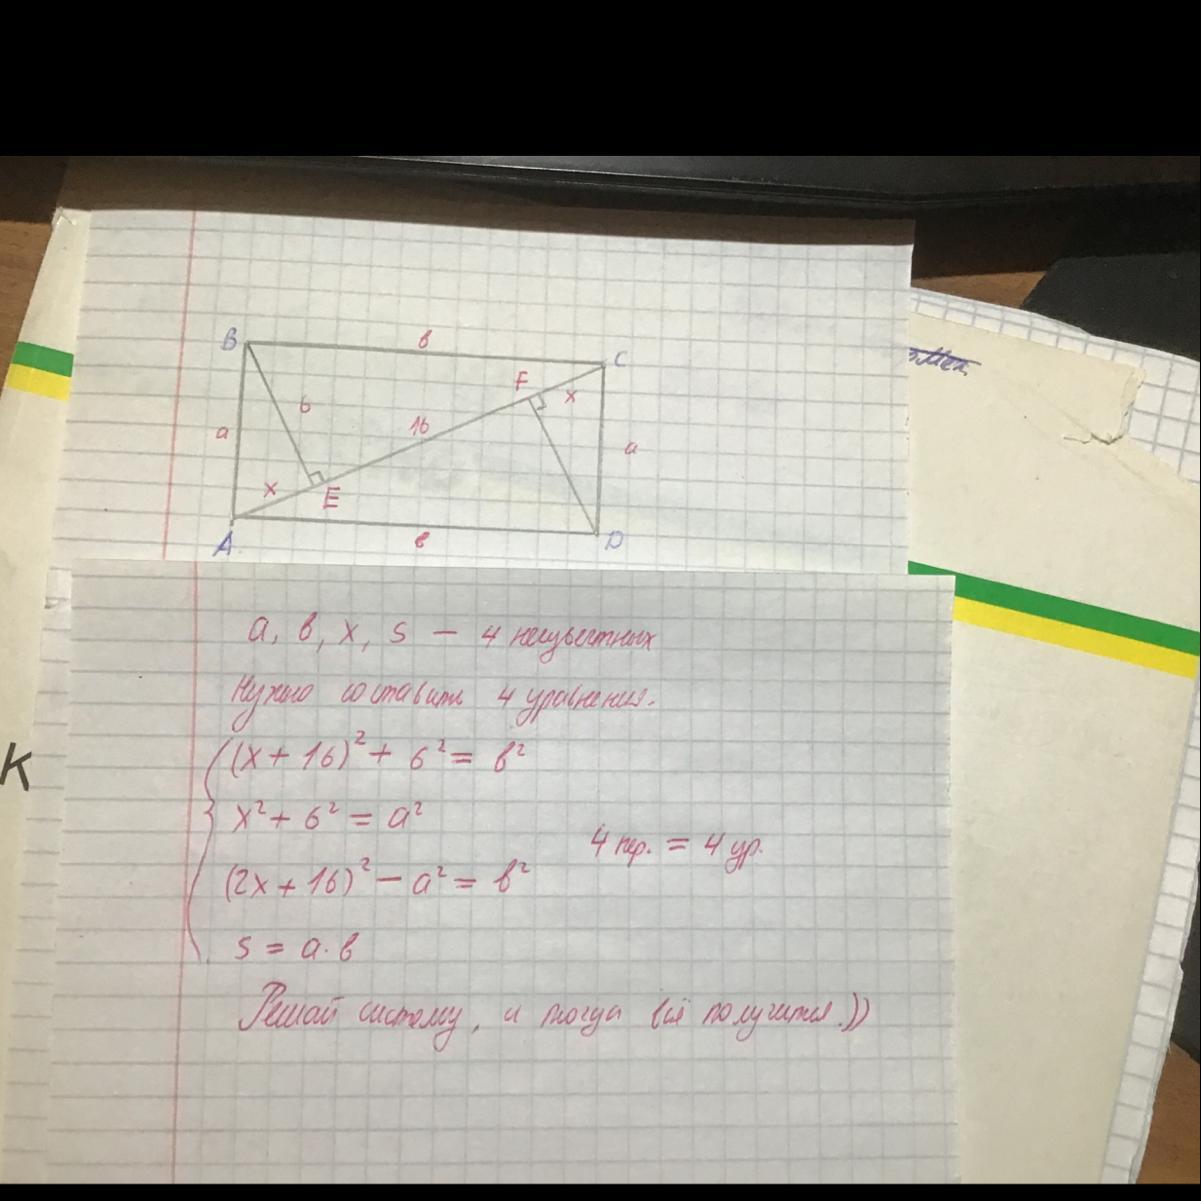 B
в
C
F
x
6
16
a
a
x
E
A
в
D
змеж
K
a, в, x, s — 4 неизвестных
Нужно составить 4 уравнения.
(x + 16)² + 6² = в²
x² + 6² = a²
4 пер. = 4 ур.
(2x + 16)² − a² = в²
s = a · в
Решай систему, и тогда всё получится.))